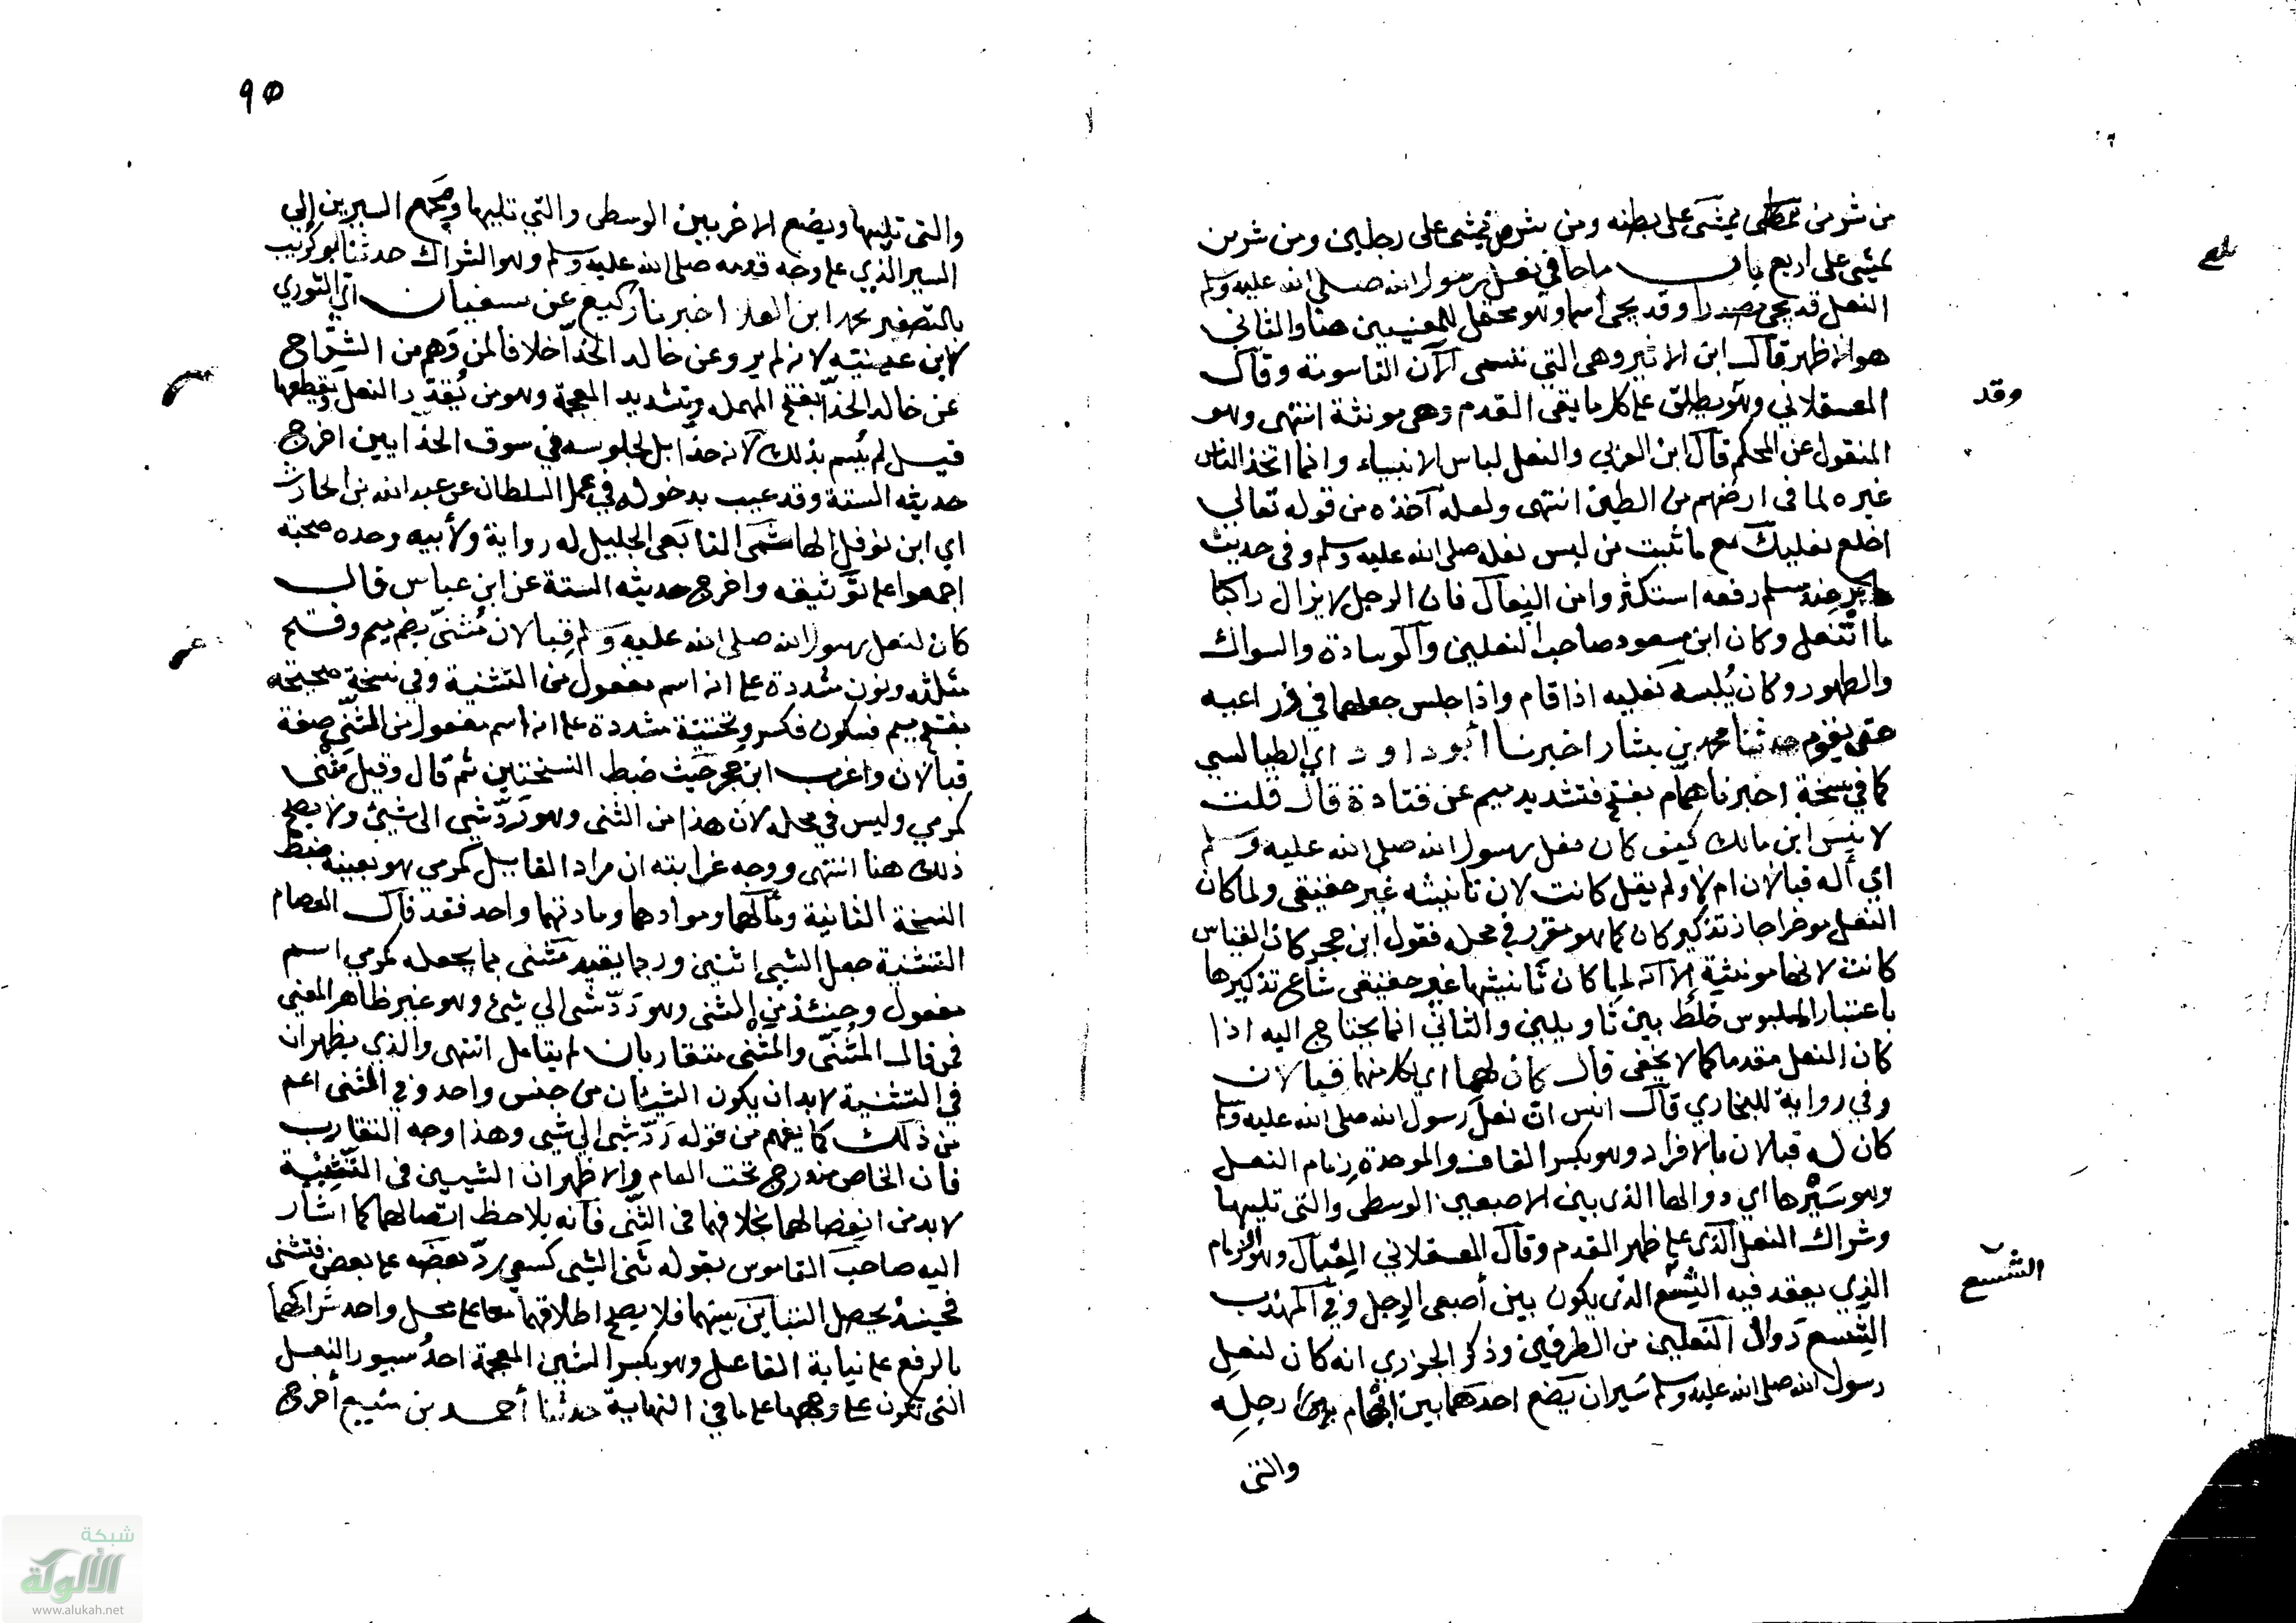 من شر من يمشي على بطنه ومن شر من يمشي على رجلين ومن شر من
يمشي على اربع باب ما جا في نعل رسول الله صلى الله عليه وسلم
النعل قد يجي مصدرا وقد يجي اسما وهو محتمل للمعنيين هنا والثاني
هو الاظهر قال ابن الاثير وهي التي تسمى الآن التاسومة وقال
وقد
العسقلاني وهو يطلق على كل ما يقي القدم وهي مونثة انتهى وهو
المنقول عن المحكم قال ابن العربي والنعل لباس الانبياء وانما اتخذ الناس
غيره لما في ارضهم من الطين انتهى ولعله آخذه من قوله تعالى
اخلع نعليك مع ما ثبت من لبس نعله صلى الله عليه وسلم وفي حديث
جابر عند مسلم رفعه استكثروا من النعال فان الرجل لا يزال راكبا
ما انتعل وكان ابن مسعود صاحب النعلين والوسادة والسواك
والطهور وكان يلبسه نعليه اذا قام واذا جلس جعلهما في ذراعيه
حتى يقوم حدثنا محمد بن بشار اخبرنا أبو داود اي الطيالسي
كما في نسخة اخبرنا همام بفتح فتشديد ميم عن قتادة قال قلت
لانس ابن مالك كيف كان نعل رسول الله صلى الله عليه وسلم
اي أله قبالان ام لا ولم يقل كانت لان تانيثه غير حقيقي ولما كان
النعل موخرا جاز تذكير كان كما هو مقرر في محله فقول ابن حجر كان القياس
كانت لانها مونثة الا انه لما كان تانيثها غير حقيقي شاع تذكيرها
باعتبار الملبوس خلط بين تاويلين والثاني انما يحتاج اليه اذا
كان النعل مقدما كما لا يخفى قال كان لهما اي لكل منهما قبالان
وفي رواية للبخاري قال انس ان نعل رسول الله صلى الله عليه وسلم
كان له قبالان بالافراد وهو بكسر القاف والموحدة زمام النعل
وهو سيرها اي دوالها الذي بين الاصبعين الوسطى والتي تليها
وشراك النعل الذي على ظهر القدم وقال العسقلاني القبال وهو الزمام
الذي يعقد فيه الشسع الذي يكون بين أصبعي الرجل وفي المهذب
الشسع
الشسع دوال النعلين من الطرفين وذكر الجزري انه كان لنعل
رسول الله صلى الله عليه وسلم سيران يضع احدهما بين ابهام رجله
والتي
٩٥
والتي تليها ويضع الاخر بين الوسطى والتي تليها ومجمع السيرين الى
السير الذي على وجه قدمه صلى الله عليه وسلم وهو الشراك حدثنا ابو كريب
بالتصغير محمد ابن العلا اخبرنا وكيع عن سفيان اي الثوري
لا ابن عيينة لانه لم يرو عن خالد الحذا خلافا لمن وهم من الشراح
عن خالد الحذا بفتح المهملة وتشديد المعجمة وهو من يقدر النعل ويقطعها
قيل لم يسم بذلك لانه حذا بل لجلوسه في سوق الحذايين اخرج
حديثه الستة وقد عيب بدخوله في عمل السلطان عن عبد الله بن الحارث
اي ابن نوفل الهاشمي التابعي الجليل له رواية ولأبيه وحده صحبة
اجمعوا على توثيقه واخرج حديثه الستة عن ابن عباس قال
كان لنعل رسول الله صلى الله عليه وسلم قبالان مثنى بضم ميم وفتح
مثلثه ونون مشددة على انه اسم مفعول من التثنية وفي نسخة صحيحة
بفتح ميم فسكون فكسر وتحتية مشددة على انه اسم مفعول من المثنى صفة
قبالان واغرب ابن حجر حيث ضبط النسختين ثم قال وقيل مثنى
كمرمي وليس في محله لان هذا من الثني وهو رد شي الى شيئ ولا يصلح
ذلك هنا انتهى ووجه غرابته ان مراد القايل كمرمي هو بعينه ضبط
النسخة الثانية ومآلهما وموادهما ومادتهما واحد فقد قال العصام
التثنية جعل الشي اثنين وربما يقيد مثنى بما يجعله كمرمي اسم
مفعول وحينئذ من الثني وهو رد شي الى شيئ وهو غير ظاهر المعنى
فمن قال المثنى والمثنى متقاربان لم يتامل انتهى والذي يظهر ان
في التثنية لا بد ان يكون الشيئان من جنس واحد وفي المثنى اعم
من ذلك كما يفهم من قوله رد شي الى شي وهذا وجه التقارب
فان الخاص مندرج تحت العام والاظهر ان الشيين في التثنية
لا بد من انفصالهما بخلافهما في الثني فانه يلاحظ اتصالهما كما اشار
اليه صاحب القاموس بقوله ثنى الشي كسعى رد بعضه على بعض فتثنى
فحينئذ يحصل التباين بينهما فلا يصلح اطلاقهما معا على محل واحد شراكهما
بالرفع على نيابة الفاعل وهو بكسر الشين المعجمة احد سيور النعل
التي تكون على وجهها على ما في النهاية حدثنا أحمد بن منيع أخرج
شبكة
الألوكة
www.alukah.net